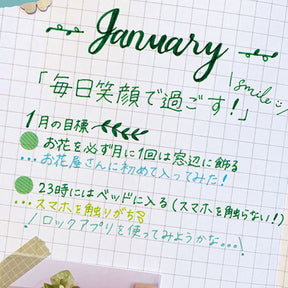 January
\ smile☺ /
「毎日笑顔で過ごす!」
1月の目標
お花を必ず月に1回は窓辺に飾る
…お花屋さんに初めて入ってみた!
23時にはベッドに入る(スマホを触らない!)
…スマホを触りがちる
\ ロックアプリを使ってみようかな… /